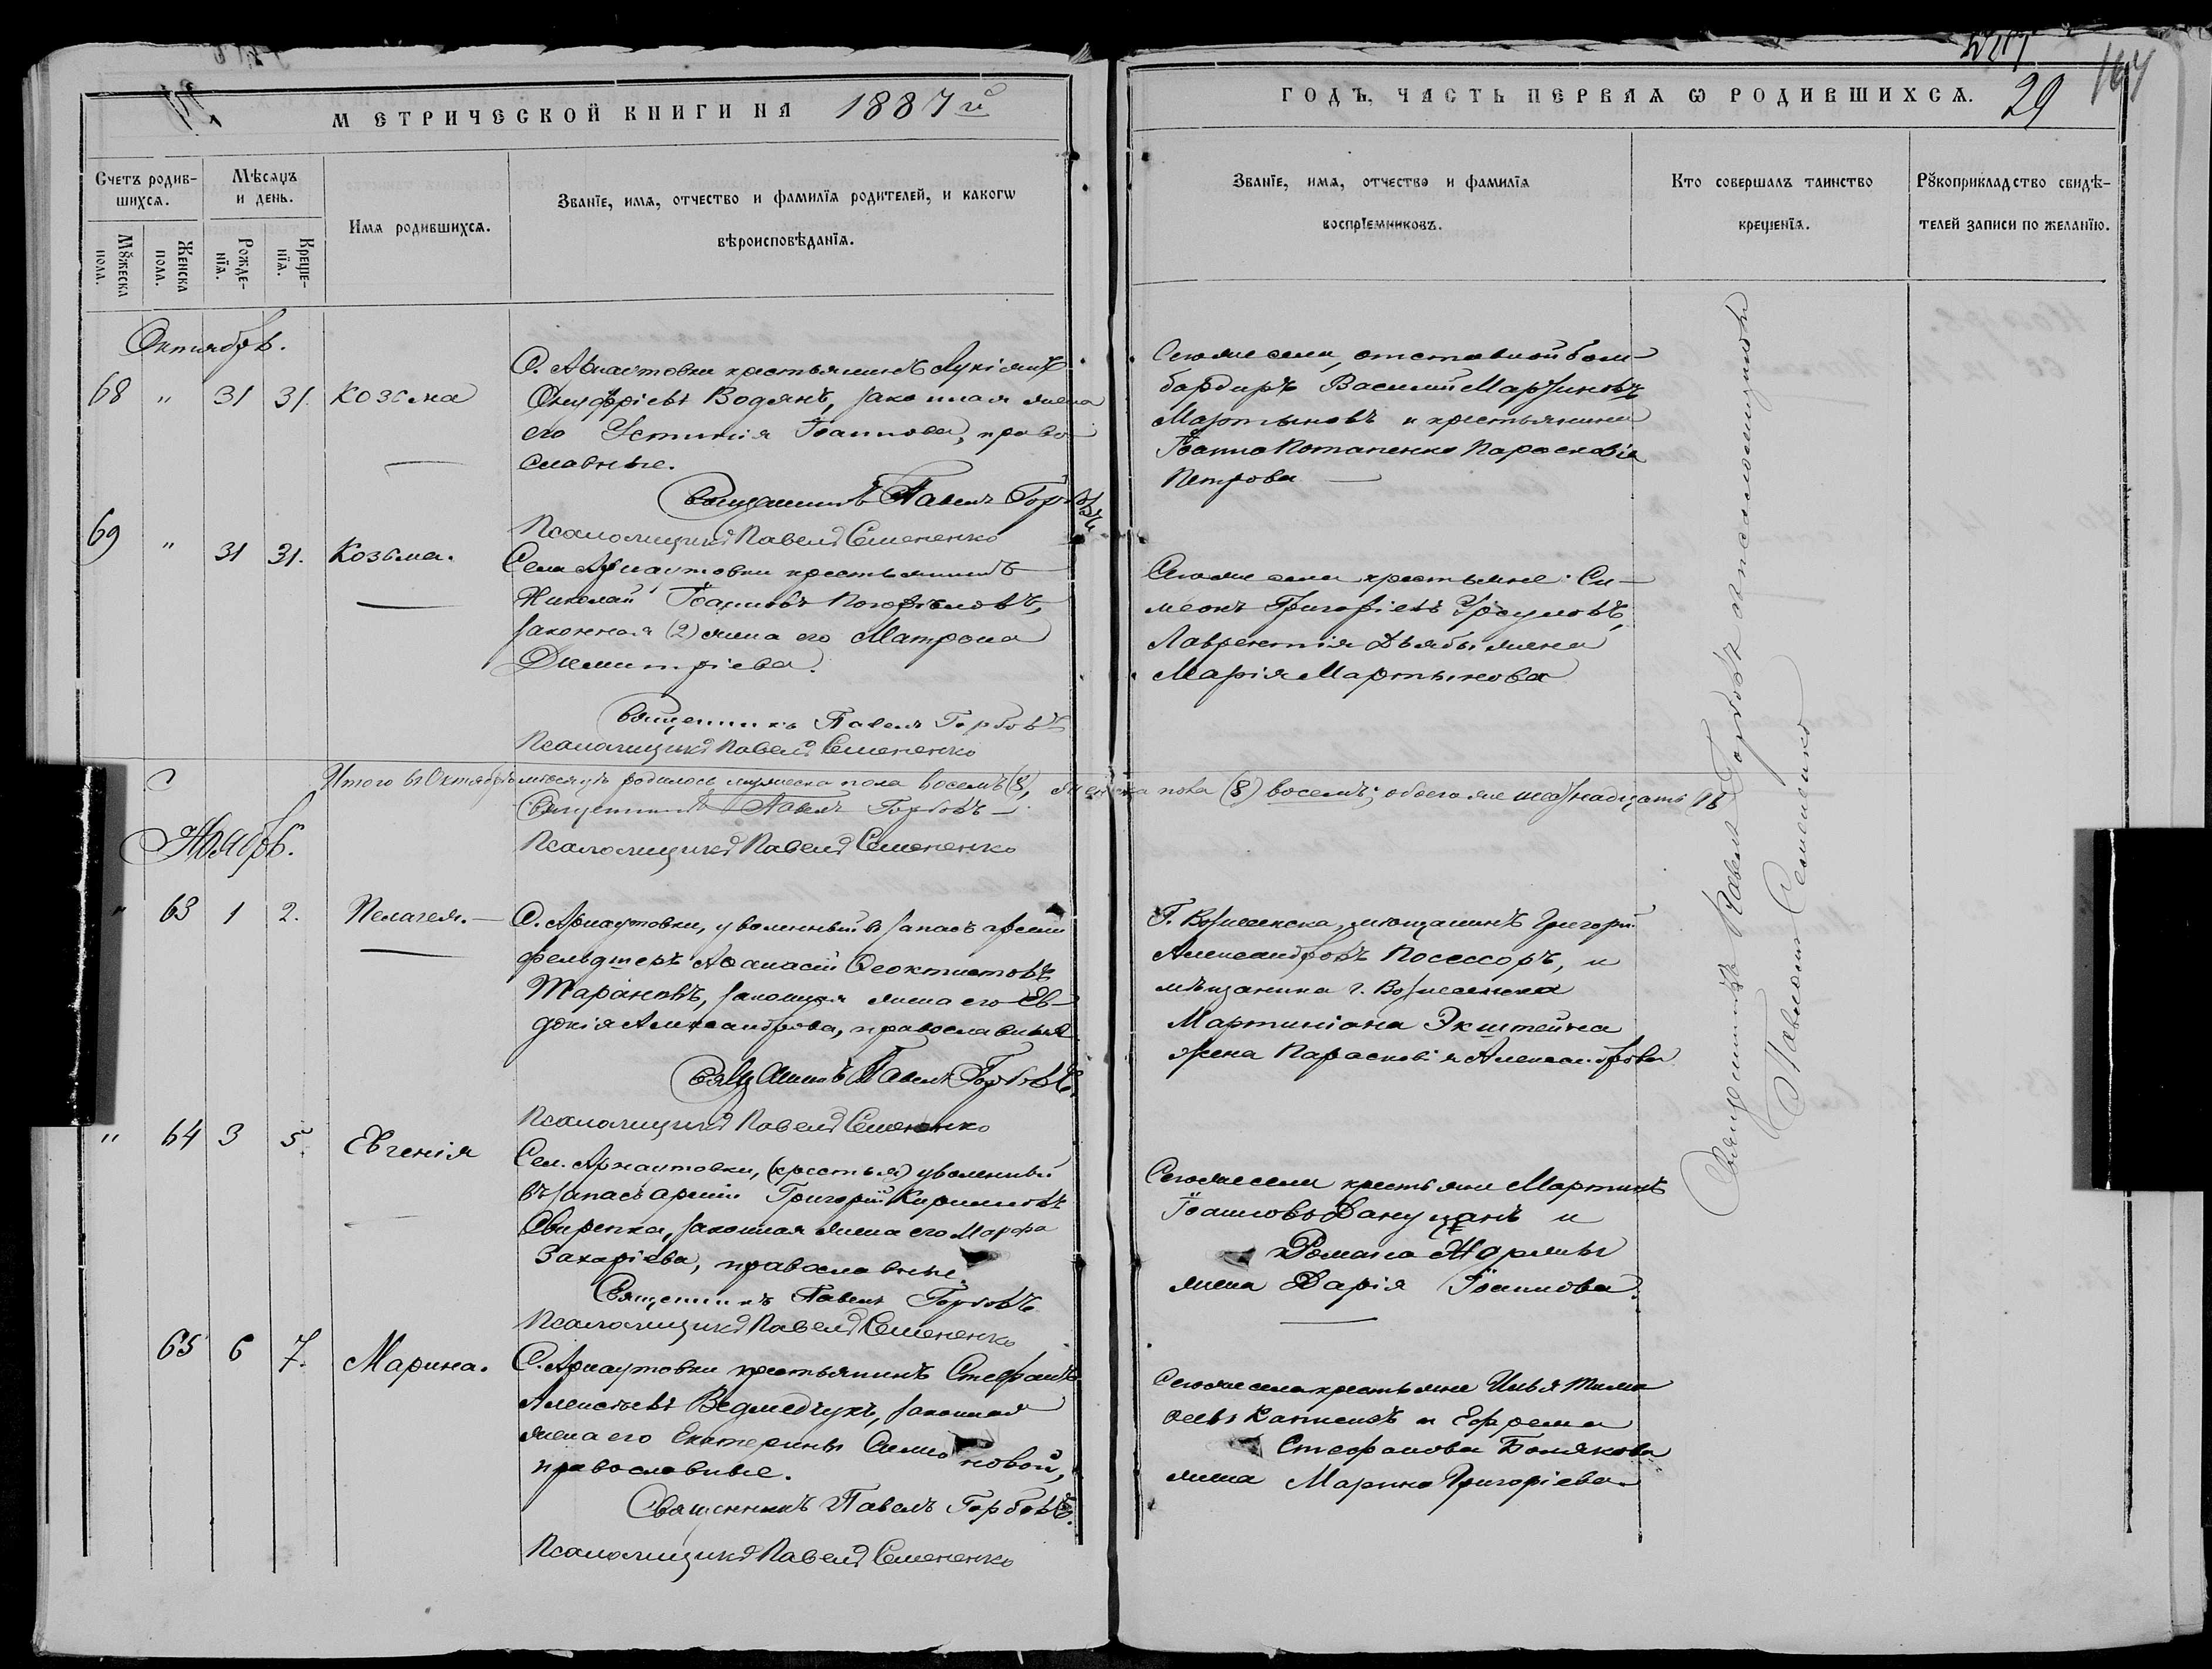 МЕТРИЧЕСКОЙ КНИГИ НА 1887 й
ГОДЪ, ЧАСТЬ ПЕРВАЯ Ѡ РОДИВШИХСЯ.
29
Счетъ родив-
шихся.
Мѣсяцъ
и день.
Имя родившихся.
Званїе, имя, отчество и фамилїя родителей, и какогѡ
вѣроисповѣданїя.
Мꙋжеска
пола.
Женска
пола.
Рожде-
нїя.
Креще-
нїя.
Званїе, имя, отчество и фамилїя
воспрїемниковъ.
Кто совершалъ таинство
крещенїя.
Рꙋкоприкладство свидѣ-
телей записи по желанїю.
Октябрь.
68 " 31 31. Козьма
С. Арнаутовки крестьянинъ Лукіянъ
Онуфріевъ Водянъ, законная жена
его Устинія Іоаннова, право-
славные.
Священникъ Павелъ Горбовъ
Псаломщикъ Павелъ Семененко
Тогоже села, отставной бом-
бардиръ Василий
Мартыновъ и крестьянина
Іоанна Потапенко Параскевія
Петрова
69 " 31 31. Козьма.
Села Арнаутовки крестьянинъ
Николай Іоанновъ
законная (2) жена его Матрона
Димитріева.
Священникъ Павелъ Горбовъ
Псаломщикъ Павелъ Семененко
Тогоже села крестьяне: Си-
меонъ Григоріевъ Урсуловъ,
Лаврентія Дзябы жена
Марія Мартынова
Итого въ Октябрѣ мѣсяцѣ родилось мужеска пола восемь (8), женска пола (8) восемь; обоего же шестнадцать 16
Священникъ Павелъ Горбовъ
Псаломщикъ Павелъ Семененко
Ноябрь.
" 63 1 2. Пелагея.
С. Арнаутовки, уволенный в запасъ арміи
фельдшеръ Аѳанасій Ѳеоктистовъ
Тарановъ, законная жена его Ев-
докія Александрова, православные
Священникъ Павелъ Горбовъ.
Псаломщикъ Павелъ Семененко
Г. Вознесенска, мѣщанинъ Григорій
Александровъ Посессоръ, и
мѣщанина г. Вознесенска
Мартиніана Экштейна
жена Параскевія Александрова
" 64 3 5. Евгенія
Сел. Арнаутовки, (крестья) уволенный
въ запасъ арміи Григорій Кирилловъ
Свирепка, законная жена его Марфа
Захаріева, православные.
Священникъ Павелъ Горбовъ
Псаломщикъ Павелъ Семененко
Тогоже села крестьяне Мартинъ
Іоанновъ и
Романа
жена Дарія Іоаннова.
65 6 7. Марина.
С. Арнаутовки крестьянинъ Стефанъ
Алексѣевъ Ведмедчукъ, законная
жена его Екатерины Симоновой,
православные.
Священникъ Павелъ Горбовъ.
Псаломщикъ Павелъ Семененко
Тогоже села крестьяне Илья Тимо
ѳеевъ и Ефрема
Стефанова Полякова
жена Марина Григоріева
Священникъ Павелъ Горбовъ и псаломщикъ
Павелъ Семененко